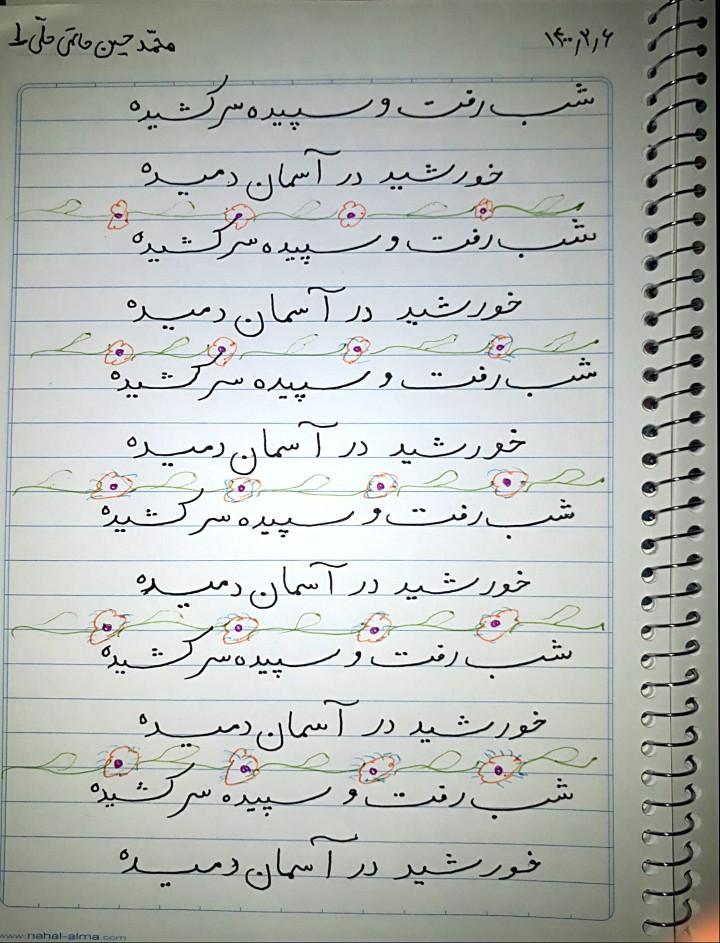 ۱۴۰۰/۲/۶
محمّد حسین حاتمی
شب رفت و سپیده سر کشیده
خورشید در آسمان دمیده
شب رفت و سپیده سر کشیده
خورشید در آسمان دمیده
شب رفت و سپیده سر کشیده
خورشید در آسمان دمیده
شب رفت و سپیده سر کشیده
خورشید در آسمان دمیده
شب رفت و سپیده سر کشیده
خورشید در آسمان دمیده
شب رفت و سپیده سر کشیده
خورشید در آسمان دمیده
www.nahal-alma.com